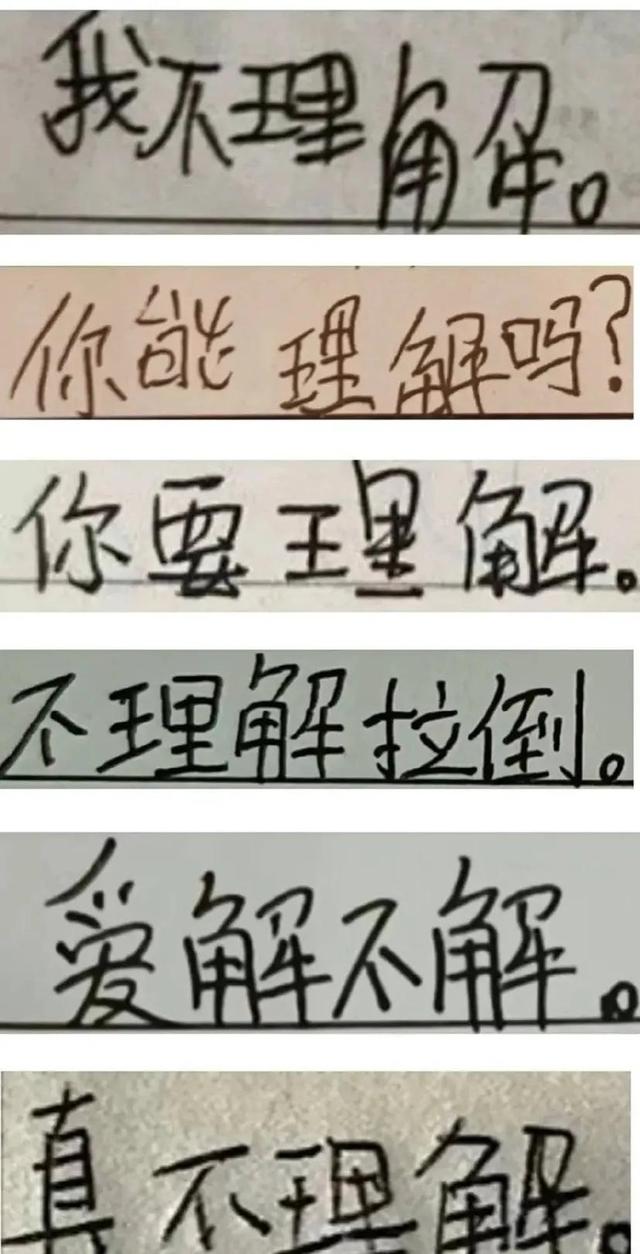 我不理解。
你能理解吗?
你要理解。
不理解拉倒。
爱解不解。
真不理解。